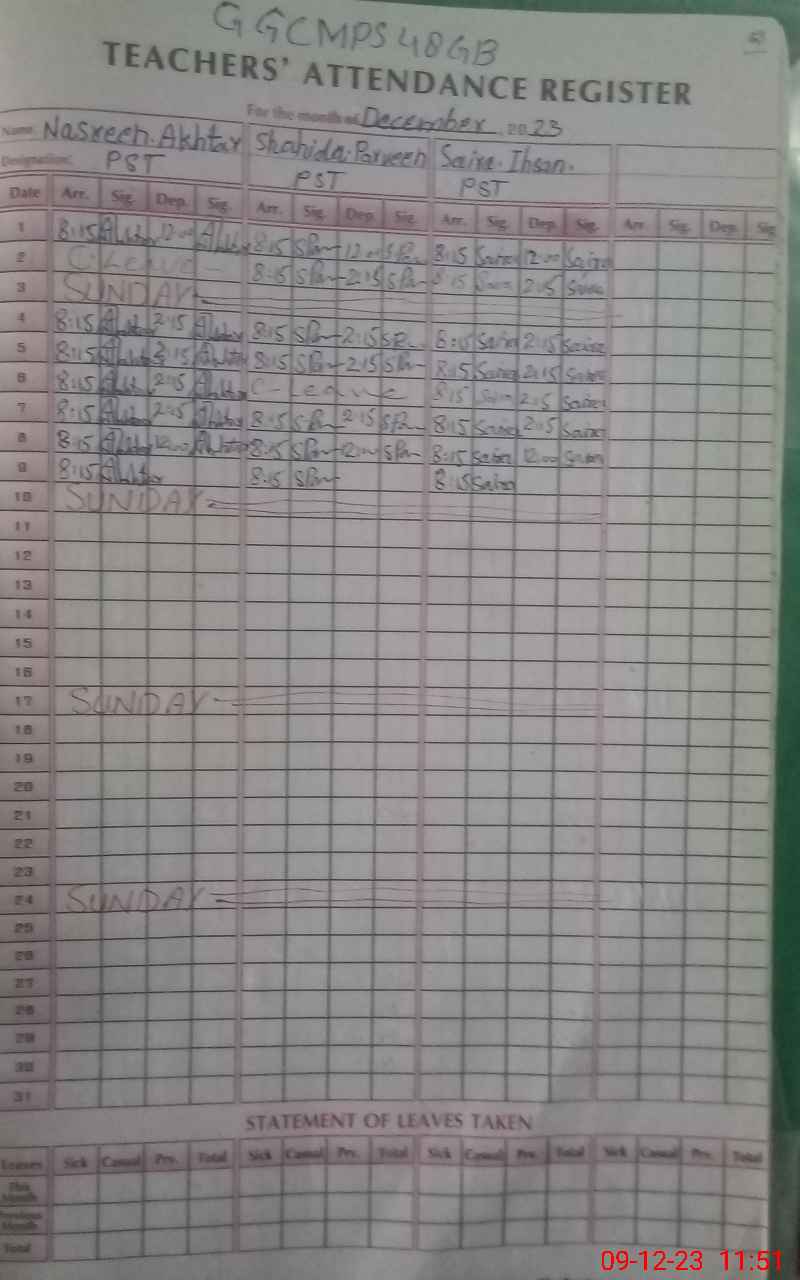 GGCMPS 48GB
TEACHERS' ATTENDANCE REGISTER
For the month of December, 2023
Name: Nasreen. Akhtar Shahida. Parveen Saira. Ihsan.
Designation: PST PST PST
Date Arr. Sig. Dep. Sig. Arr. Sig. Dep. Sig. Arr. Sig. Dep. Sig. Arr. Sig. Dep. Sig.
1 8:15 12:00 8:15 12:00 8:15 Saira 12:00 Saira
2 C-Leave 8:15 2:15 8:15 Saira 2:15 Saira
3 SUNDAY
4 8:15 2:15 8:15 2:15 8:15 Saira 2:15 Saira
5 8:15 2:15 8:15 2:15 8:15 Saira 2:15 Saira
6 8:15 2:15 C-Leave 8:15 Saira 2:15 Saira
7 8:15 2:15 8:15 2:15 8:15 Saira 2:15 Saira
8 8:15 12:00 8:15 12:00 8:15 Saira 12:00 Saira
9 8:15 8:15 8:15 Saira
10 SUNDAY
11
12
13
14
15
16
17 SUNDAY
18
19
20
21
22
23
24 SUNDAY
25
26
27
28
29
30
31
STATEMENT OF LEAVES TAKEN
Leaves Sick Casual Prv. Total Sick Casual Prv. Total Sick Casual Prv. Total Sick Casual Prv. Total
This Month
Previous Month
Total
09-12-23 11:51